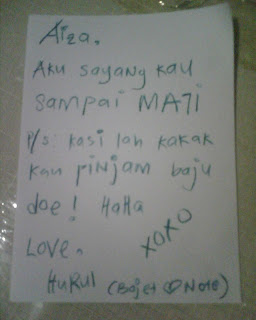 Aiza,
Aku sayang kau
sampai MATI
P/s: kasi lah kakak
kau PINJam baju
doe! HaHa
Love,
XOXO
HuRul (Bajet ♡ Note)